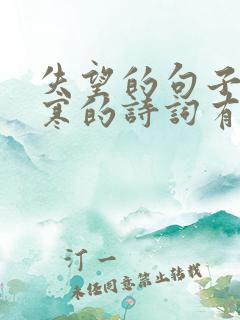 失望的句子
寒的詩詞有
汀一
未经同意禁止转载